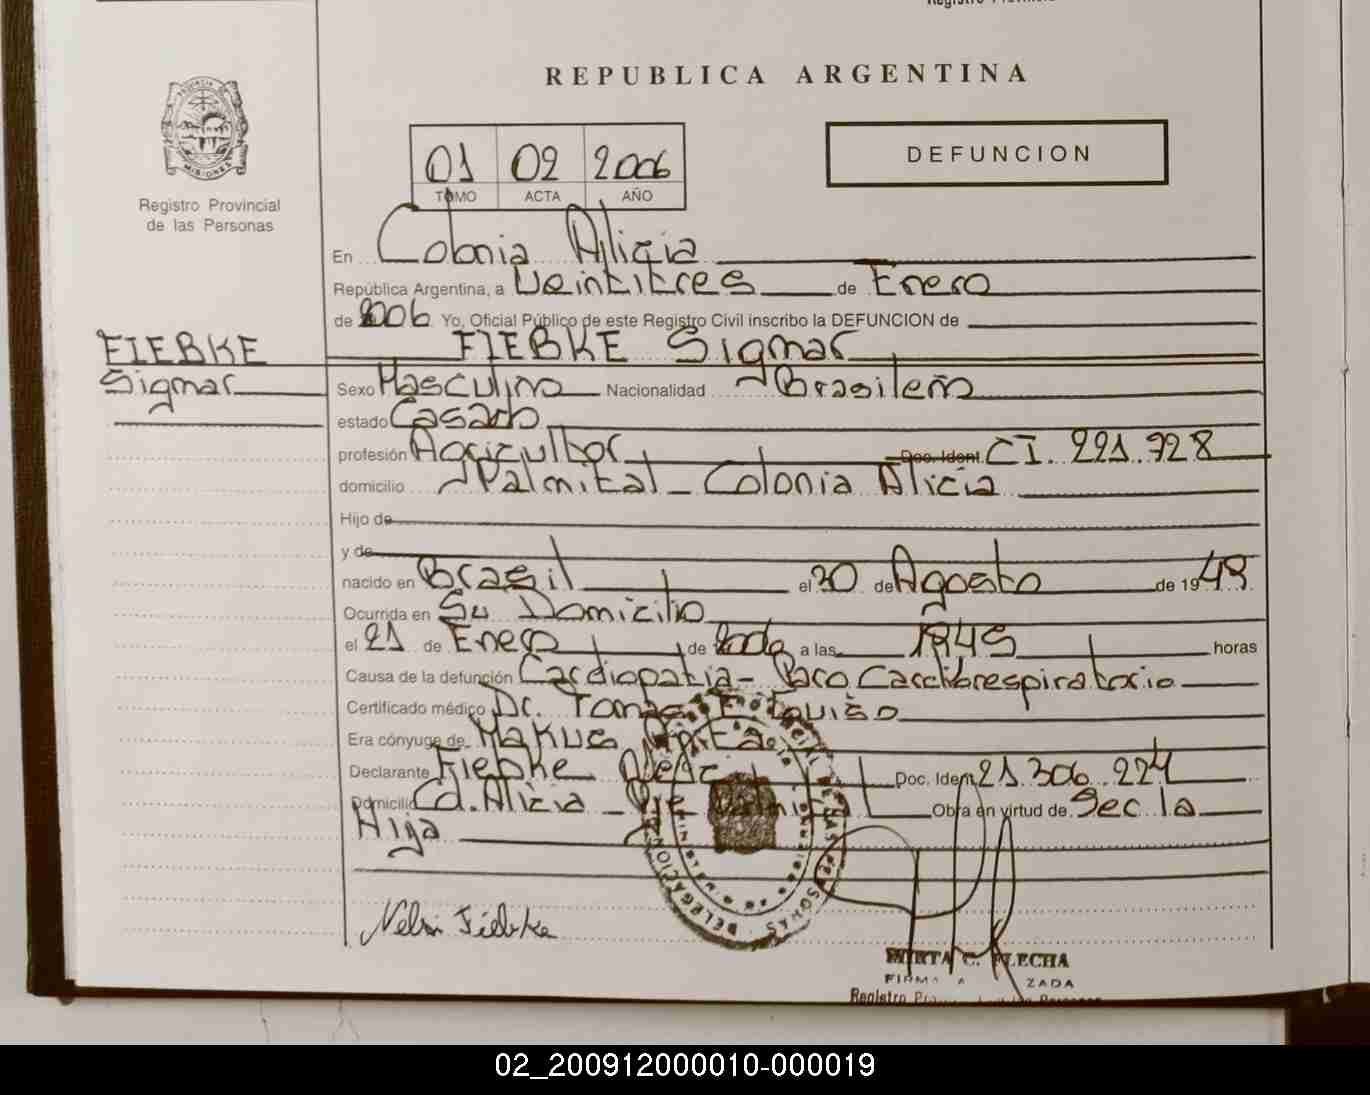 REPUBLICA ARGENTINA
PROVINCIA DE
MISIONES
Registro Provincial
de las Personas
01 02 2006
TOMO ACTA AÑO
DEFUNCION
En Colonia Alicia
República Argentina, a Veintitres de Enero
de 2006 Yo, Oficial Público de este Registro Civil inscribo la DEFUNCION de
FIEBKE
Sigmar
FIEBKE Sigmar
Sexo Masculino Nacionalidad Brasileño
estado Casado
profesión Agricultor Doc. Ident. CI. 221.728
domicilio Palmital - Colonia Alicia
Hijo de
y de
nacido en Brasil el 20 de Agosto de 1949
Ocurrida en Su Domicilio
el 21 de Enero de 2006 a las 1845 horas
Causa de la defunción Cardiopatia - Paro Cardiorespiratorio
Certificado médico Dr. Tomas
Era cónyuge de
Declarante Fiebke Doc. Ident. 21.306.224
Domicilio Cd. Alicia - Obra en virtud de Ser la
Hija
DELEGACION
Fiebke
MIRTA C. FLECHA
Registro
02_200912000010-000019